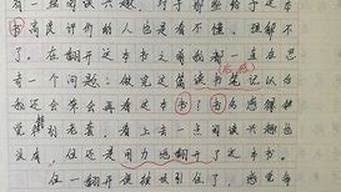 有一些阅读兴趣。对于那些给予这本
书高度评价的人也是有不懂,理解不
了。在翻开这本书之前我都一直在思
考一个问题:做完这篇读书笔记以后
我还会带会再看这本书?书名感
觉到老套。看上去一点阅读兴趣也
没有,但还是用力地翻开了这本书。
但一翻开便被吸引住了。感觉每